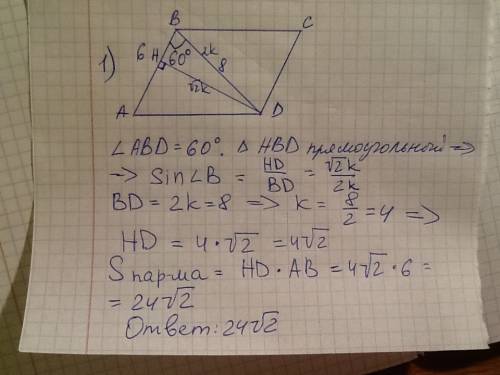 1)
B C
6 H 60° 2k
8
√2k
A D
∠ABD = 60°. △ HBD прямоугольный =>
=> Sin∠B = HD/BD = √2k/2k
BD = 2k = 8 => k = 8/2 = 4 =>
HD = 4 · √2 = 4√2
S пар-ма = HD · AB = 4√2 · 6 =
= 24√2
Ответ: 24√2